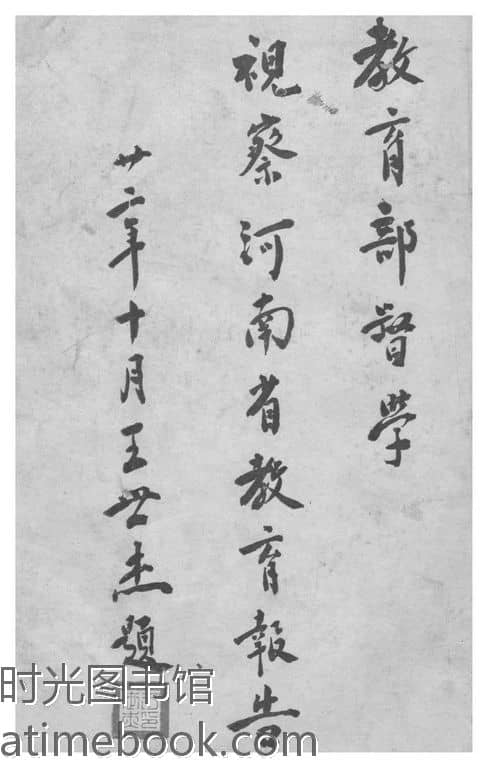 教育部督學
視察河南省教育報告
廿二年十月王世杰題
时光图书馆
atimebook.com